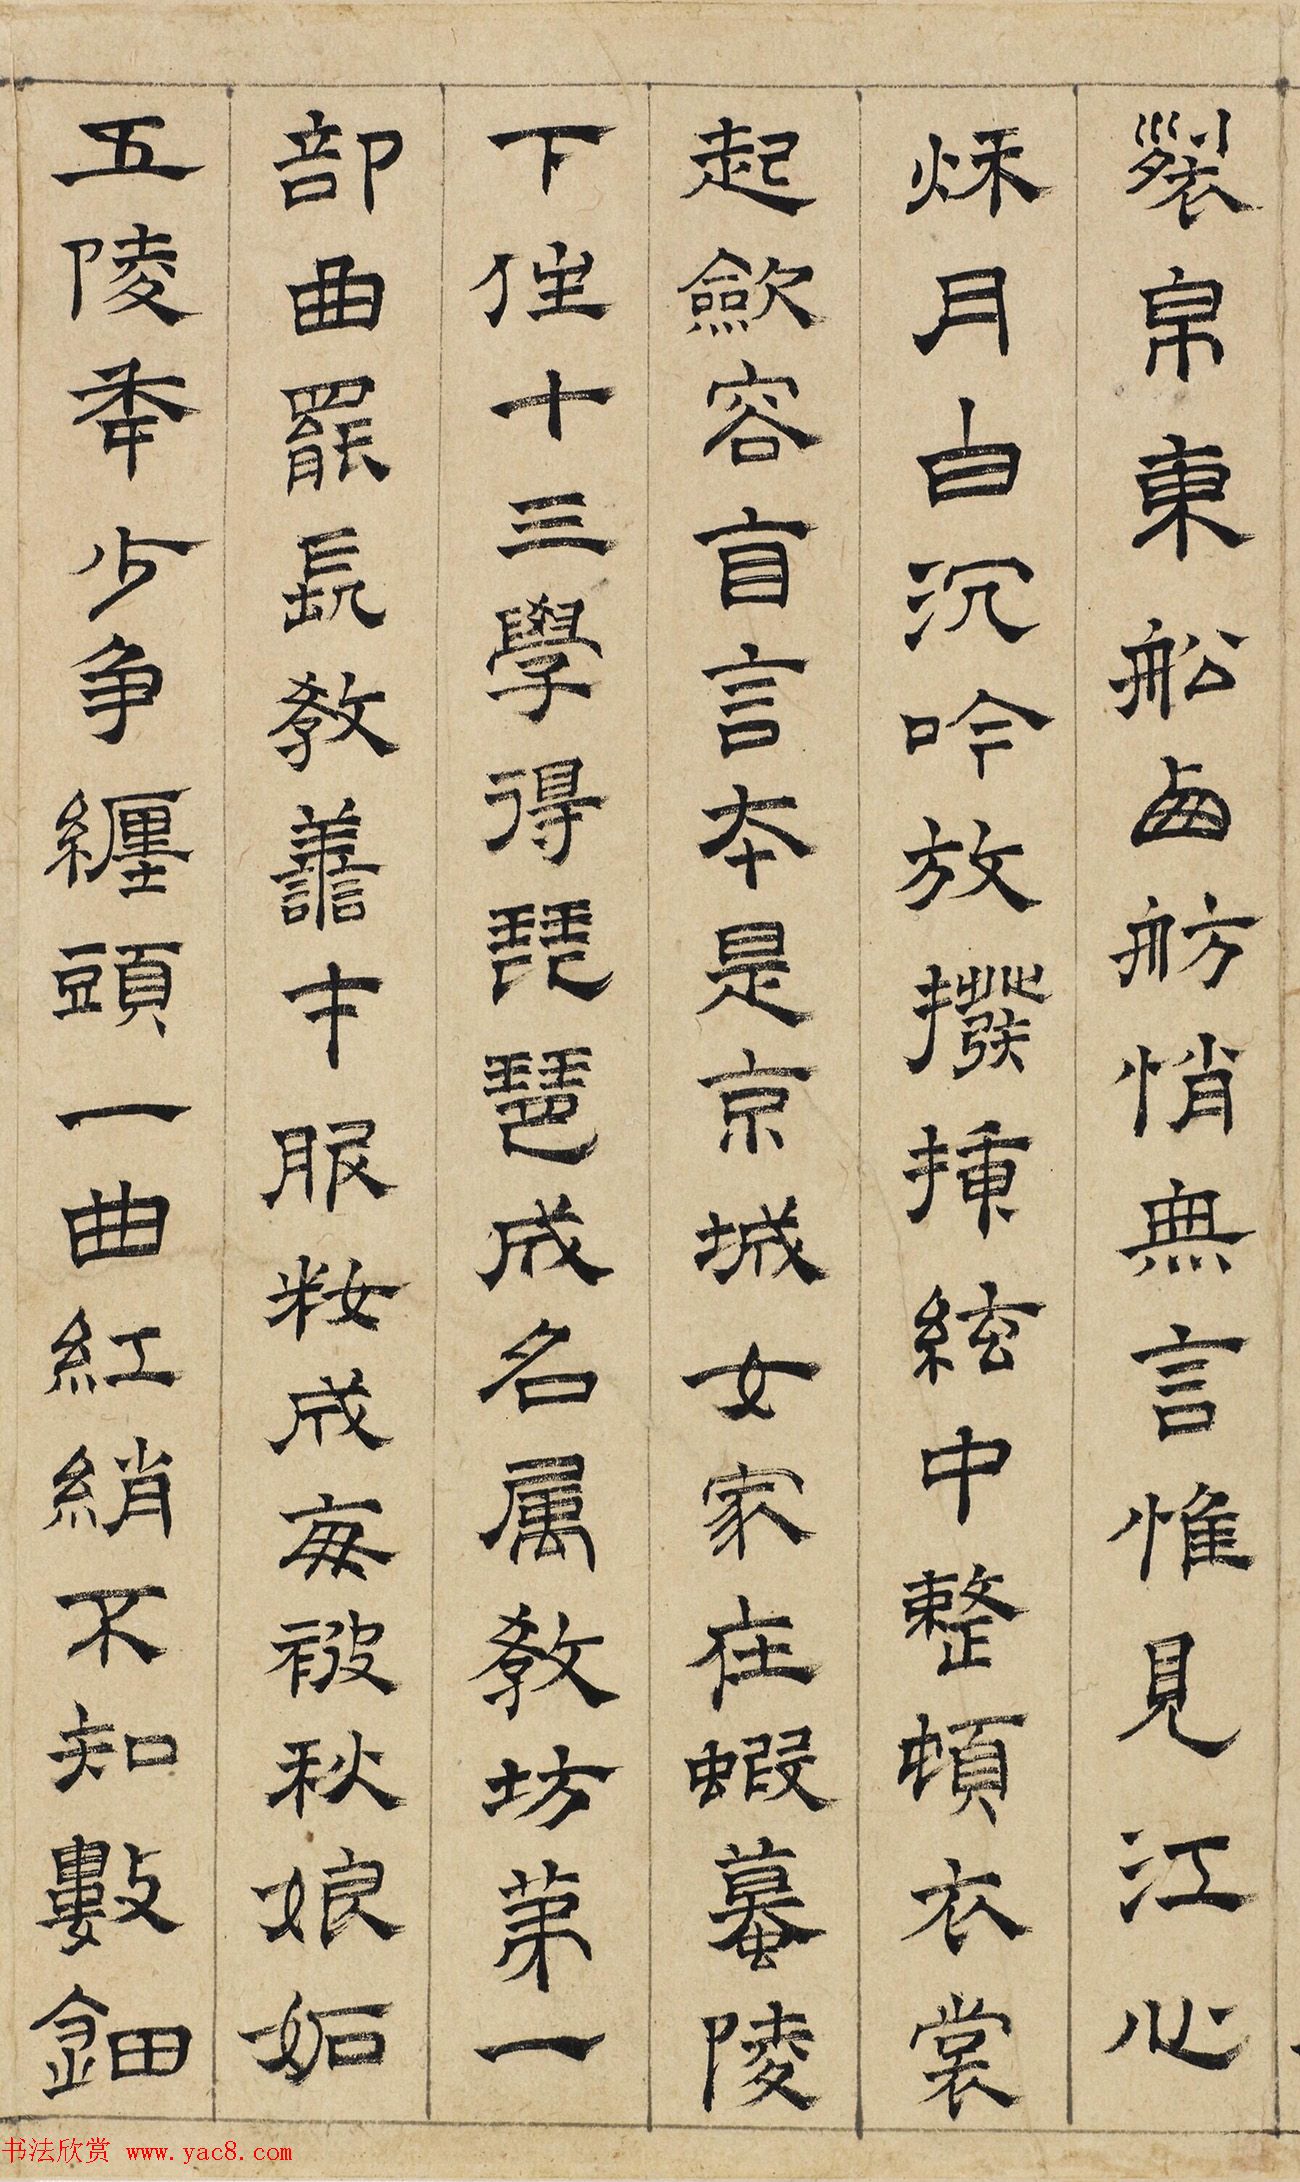 裂帛東船西舫悄無言惟見江心
秌月白沉吟放撥插絃中整頓衣裳
起歛容自言本是京城女家在蝦蟇陵
下住十三學得琵琶成名属教坊第一
部曲罷長教善才服粧成每被秋娘妬
五陵年少争纏頭一曲紅綃不知數鈿
书法欣赏 www.yac8.com